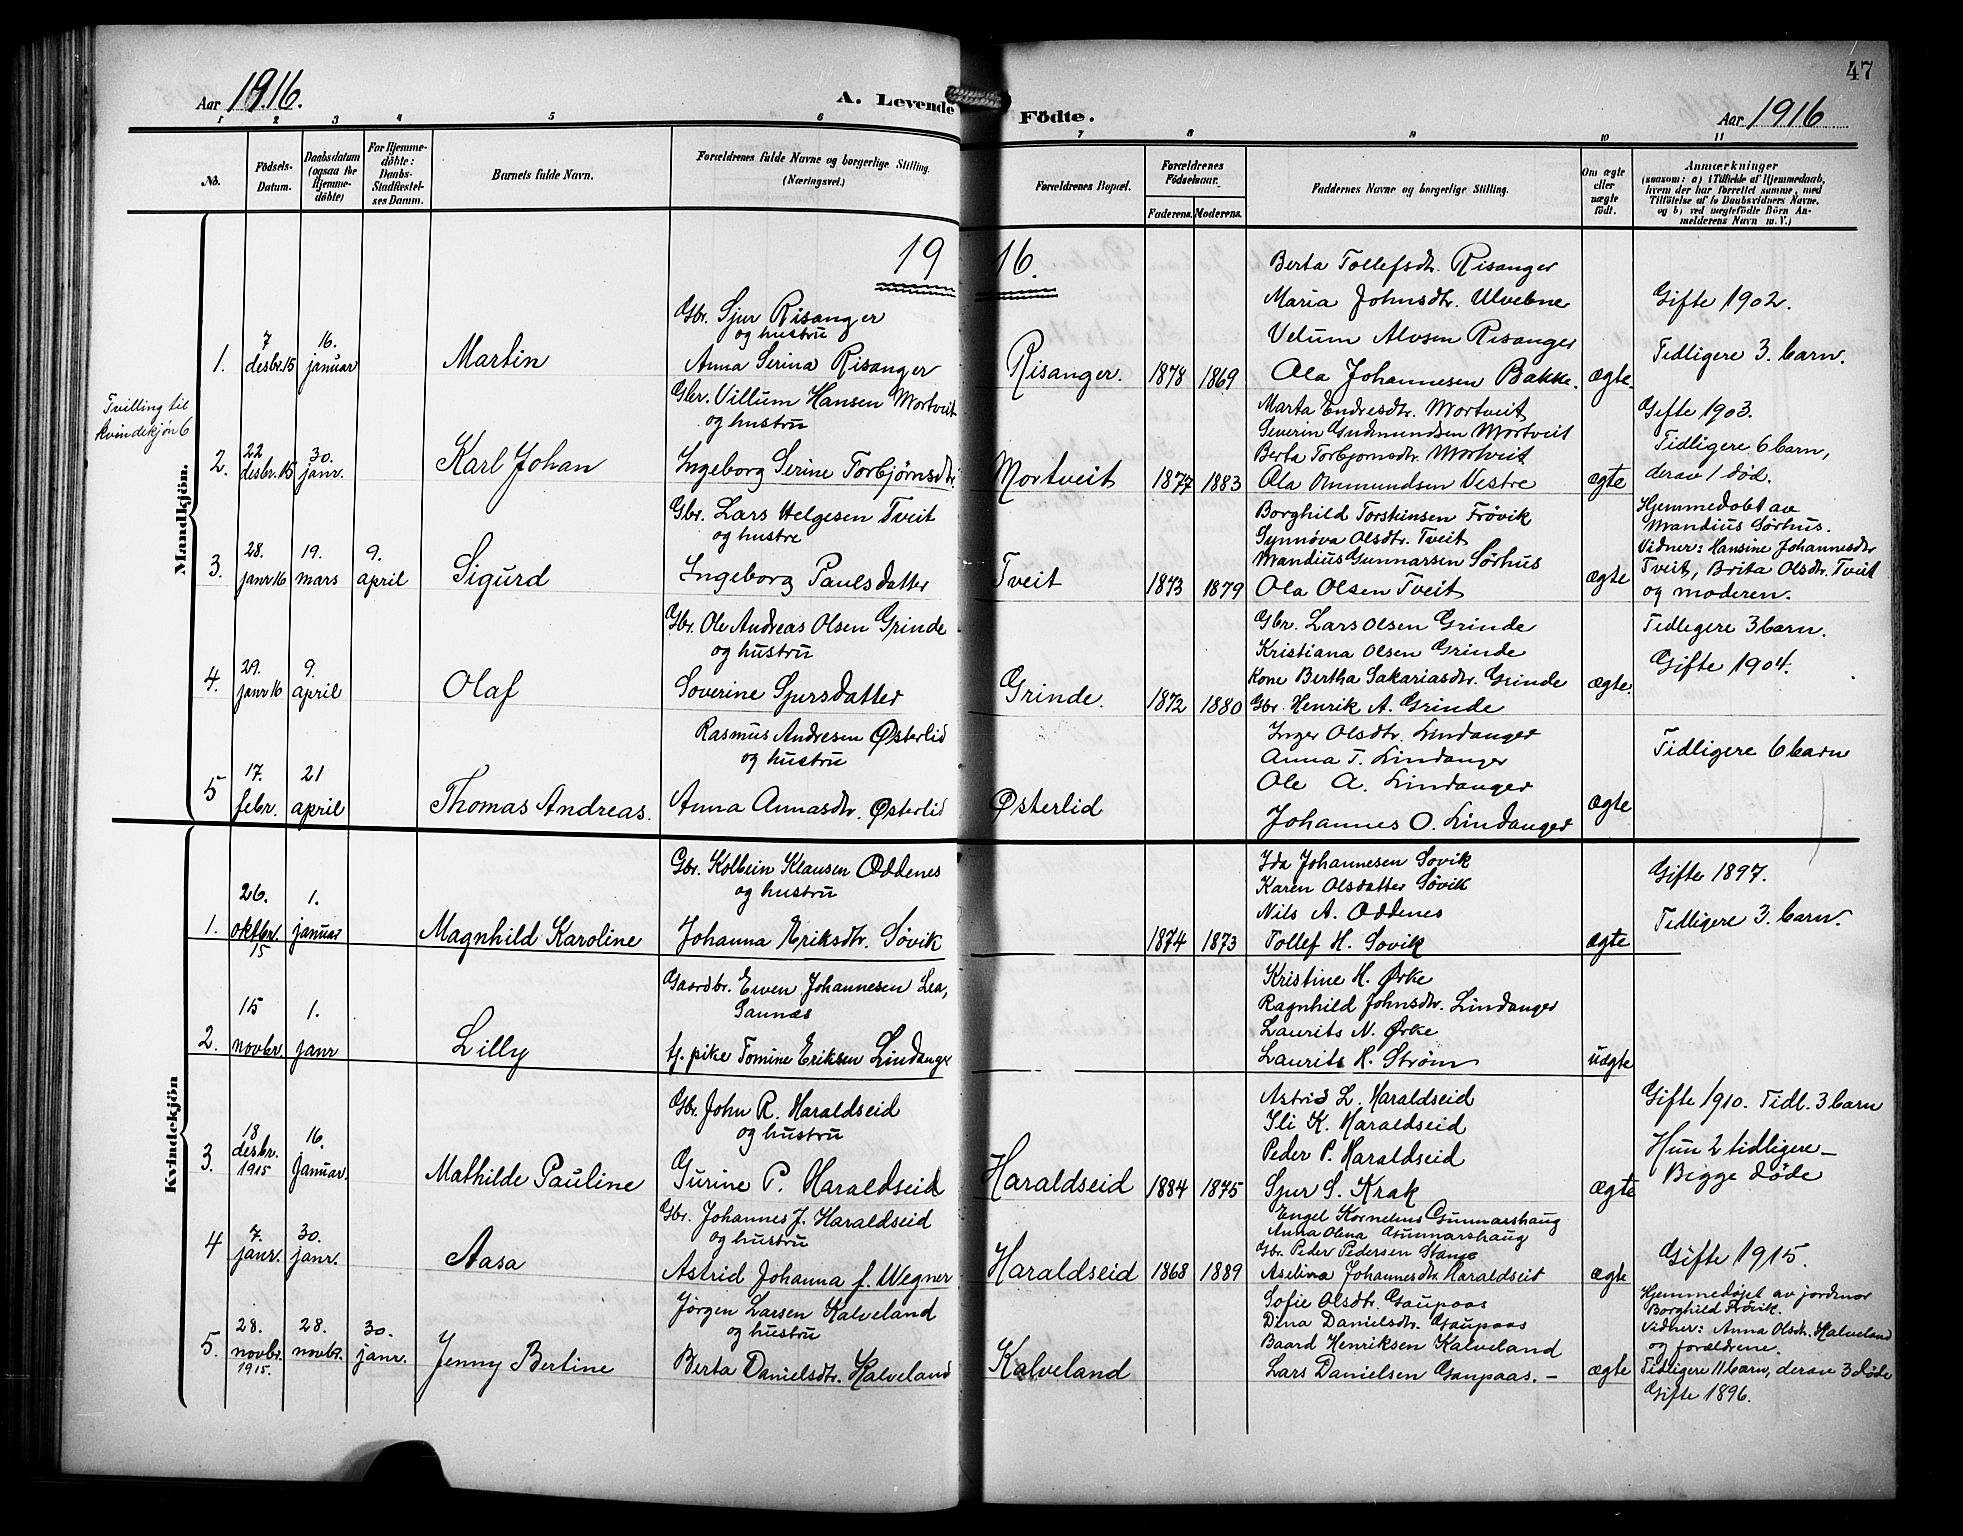 47
Aar 1916.
A. Levende Födte.
Aar 1916
1 2 3 4 5 6 7 8 9 10 11
No.
Födsels-Datum.
Daabsdatum (ogsaa for Hjemme-döbte)
For Hjemme-döbte: Daabs-Stadfæstel-ses Datum.
Barnets fulde Navn.
Forældrenes fulde Navne og borgerlige Stilling. (Næringsvei.)
Forældrenes Bopæl.
Forældrenes Födselsaar.
Faderens. Moderens.
Faddernes Navne og borgerlige Stilling.
Om ægte eller uægte födt.
Anmærkninger (saasom: a) i Tilfælde af Hjemmedaab, hvem der har forrettet samme, med Tilföielse af to Daabsvidners Navne, og b) ved uægtefödte Börn An-melderens Navn m. V.)
1916.
Mandkjön.
1. 7 desbr. 15
16. januar
Martin
Gbr. Sjur Risanger
og hustru
Anna Serina Risanger
Risanger. 1878 1869
Berta Tollefsdtr. Risanger
Maria Johnsdtr. Ulvebne
Velum Alvsen Risanger
Ola Johannesen Bakke.
ægte.
Gifte 1902.
Tidligere 3. barn.
Tvilling til
kvindekjøn 6
2. 22 desbr. 15
30. janr.
Karl Johan
Gbr. Villum Hansen Mortveit
og hustru
Ingeborg Serine Torbjørnsdtr.
Mortveit 1877 1883
Marta Endresdtr. Mortveit
Severin Gudmundsen Mortveit
Berta Torbjornsdtr. Mortveit
Ola Ommundsen Vestre
ægte
Gifte 1903.
Tidligere 6 barn,
derav 1 død.
3. 28. janr 16
19. mars
9. april
Sigurd
Gbr. Lars Helgesen Tveit
og hustre
Ingeborg Paulsdatter
Tveit 1873 1879
Borghild Torsteinsen Frövik
Synnöva Olsdtr. Tveit
Mandius Gunnarsen Sörhus
Ola Olsen Tveit
ægte
Hjemmedöbt av
Mandius Sörhus.
Vidner: Hansine Johannesdtr
Tveit, Brita Olsdtr. Tveit
og moderen.
4. 29. janr 16
9. april
Olaf
Gbr. Ole Andreas Olsen Grinde
og hustru
Soverine Sjursdatter
Grinde. 1872 1880
Gbr. Lars Olsen Grinde
Kristiana Olsen Grinde
Kone Bertha Sakariasdtr. Grinde
Gbr. Henrik A. Grinde
ægte.
Tidligere 3 barn.
Gifte 1904.
5 17. febr.
21 april
Thomas Andreas.
Rasmus Andresen Østerlid
og hustru
Anna Annasdtr. Østerlid
Østerlid
Inger Olsdtr. Lindanger
Anna T. Lindanger
Ole A. Lindanger
Johannes O. Lindanger
ægte
Tidligere 6 barn
Kvindekjön
1. 26. oktbr. 15
1. januar
Magnhild Karoline
Gbr. Kolbein Klausen Oddenes
og hustru
Johanna Eriksdtr. Søvik
1874 1873
Ida Johannesen Sovik
Karen Olsdatter Søvik
Nils A. Oddenes
Tollef H. Sovik
ægte
Gifte 1897.
Tidligere 3. barn.
2. 15 novbr.
1. janr
Lilly
Gaardbr. Ewen Johannesen Lea,
tj. pike Tomine Eriksen Lindanger
Kristine H. Ørke
Ragnhild Johnsdtr. Lindanger
Laurits N. Ørke
Laurits H. Strøm
uægte
3. 18 desbr. 1915
16. Januar.
Mathilde Pauline
Gbr. John R. Haraldseid
og hustru
Gurine P. Haraldseid
Haraldseid 1884 1875
Astrid L. Haraldseid
Ili K. Haraldseid
Peder P. Haraldseid
Sjur S. Krak
ægte
Gifte 1910. Tidl. 3 barn
Hun 2 tidligere –
Bigge døde
4 7. janr.
30. janr.
Aasa
Gbr. Johannes J. Haraldseid
og hustru
Astrid Johanna f. Wegner
Haraldseid 1868 1889
Engel Kornelius Gunnarshaug
Anna Olena Gunnarshaug
Gbr. Peder Pedersen Stange
Aselina Johannesdtr. Haraldseid
ægte
Gifte 1915.
5. 28. novbr. 1915.
28. novbr.
30. janr.
Jenny Bertine
Jörgen Larsen Kalveland
og hustru
Berta Danielsdtr. Kalveland
Kalveland
Sofie Olsdtr. Gaupaas
Dina Danielsdtr. Gaupaas
Baard Henriksen Kalveland
Lars Danielsen Gaupaas. –
ægte
Hjemmedøjet av jordmor
Borghild Frövik.
Vidner: Anna Olsdtr. Kalveland
og forældrene.
Tidligere 11 barn, derav 3 døde
Gifte 1896.